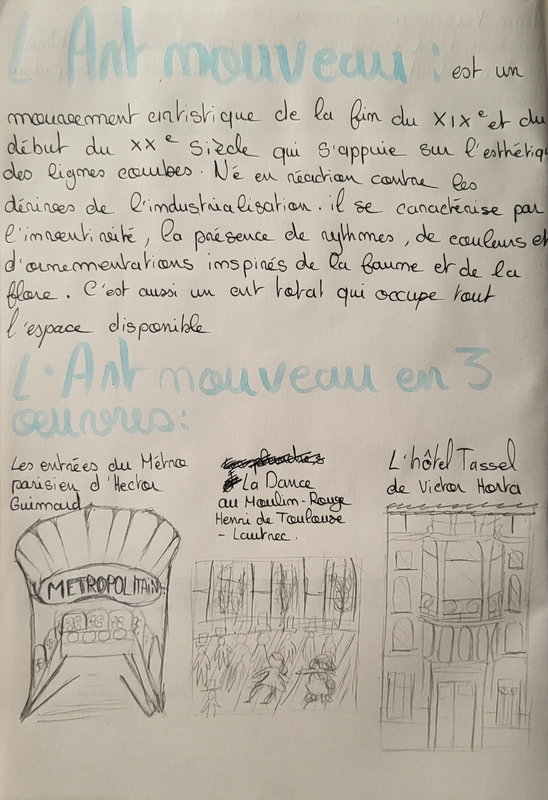 L'Art nouveau : est un
mouvement artistique de la fin du XIXe et du
début du XXe Siècle qui s'appuie sur l'esthétiqu
des lignes courbes. Né en réaction contre les
dérives de l'industrialisation. il se caractérise par
l'inventivité, la présence de rythmes, de couleurs et
d'ornementations inspirés de la faune et de la
flore. C'est aussi un art total qui occupe tout
l'espace disponible
L'Art nouveau en 3
œuvres:
Les entrées du Métro
parisien d'Hector
Guimard
La Dance
au Moulin-Rouge
Henri de Toulouse
- Lautrec.
L'hôtel Tassel
de Victor Horta
METROPOLITAIN